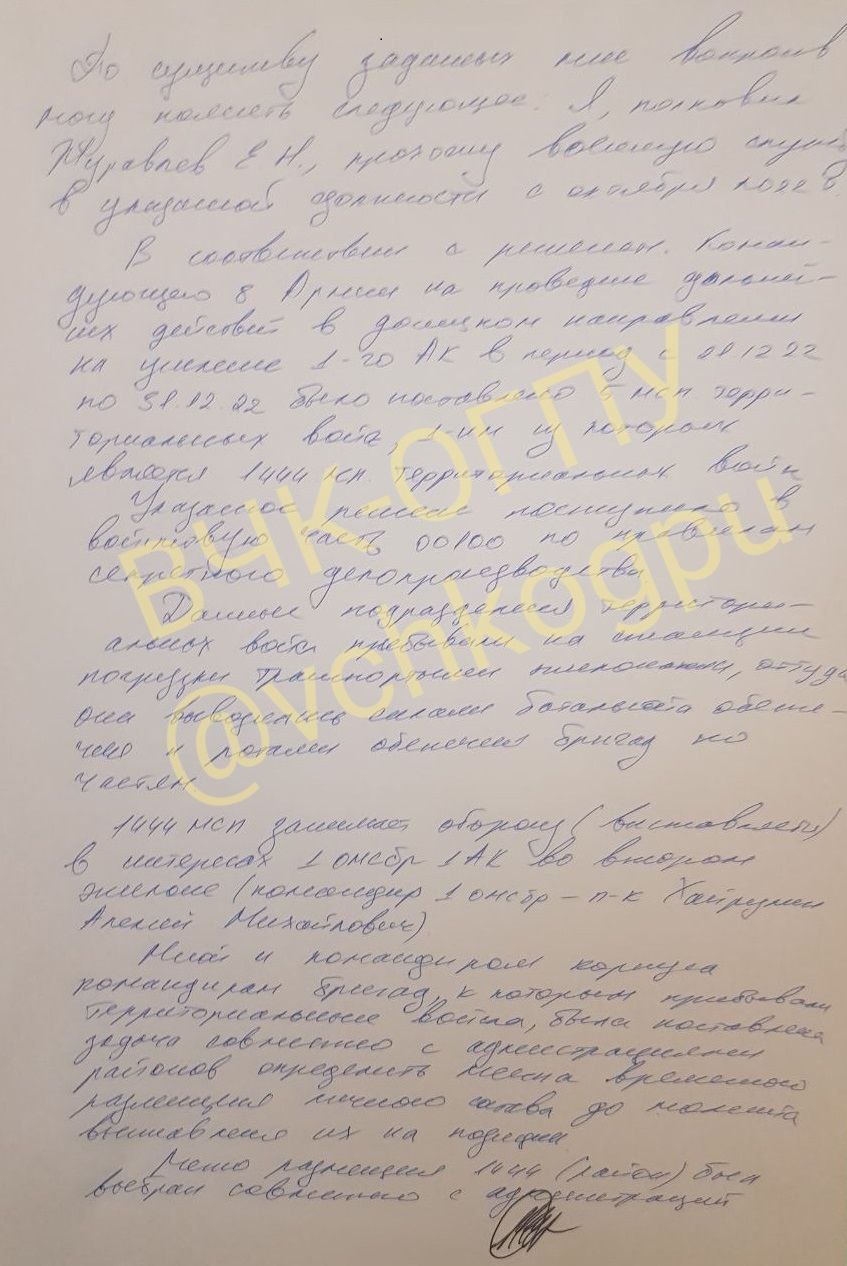 По существу заданных мне вопросов
могу пояснить следующее. Я, полковник
Журавлев Е.Н., прохожу военную службу
в указанной должности с октября 2022 г.
В соответствии с решением Коман-
дующего 8 Армии на проведение дальней-
ших действий в донецком направлении
на усиление 1-го АК в период с 12 22
по 31.12.22 было поставлено 5 мсп терри-
ториальных войск, 1-им из которых
является 1444 мсп. территориальных войск
Указанное решение поступило в
войсковую часть 00100 по правилам
секретного делопроизводства
Данные подразделения территори-
альных войск прибывали на станции
погрузки транспортными эшелонами, оттуда
они вывозились силами батальона обеспе-
чения и ротами обеспечения бригад по
частям
1444 мсп занимает оборону (выставляется)
в интересах 1 омсбр 1 АК во втором
эшелоне (командир 1 омсбр – п-к Хайруллин
Алексей Михайлович)
Мной и командиром корпуса
командирам бригад, к которым прибывали
территориальные войска, была поставлена
задача совместно с администрациями
районов определить места временного
размещения личного состава до момента
выставления их на позиции
Место размещения 1444 (район) был
выбран совместно с администрацией
ВЧК-ОГПУ
@vchkogpu